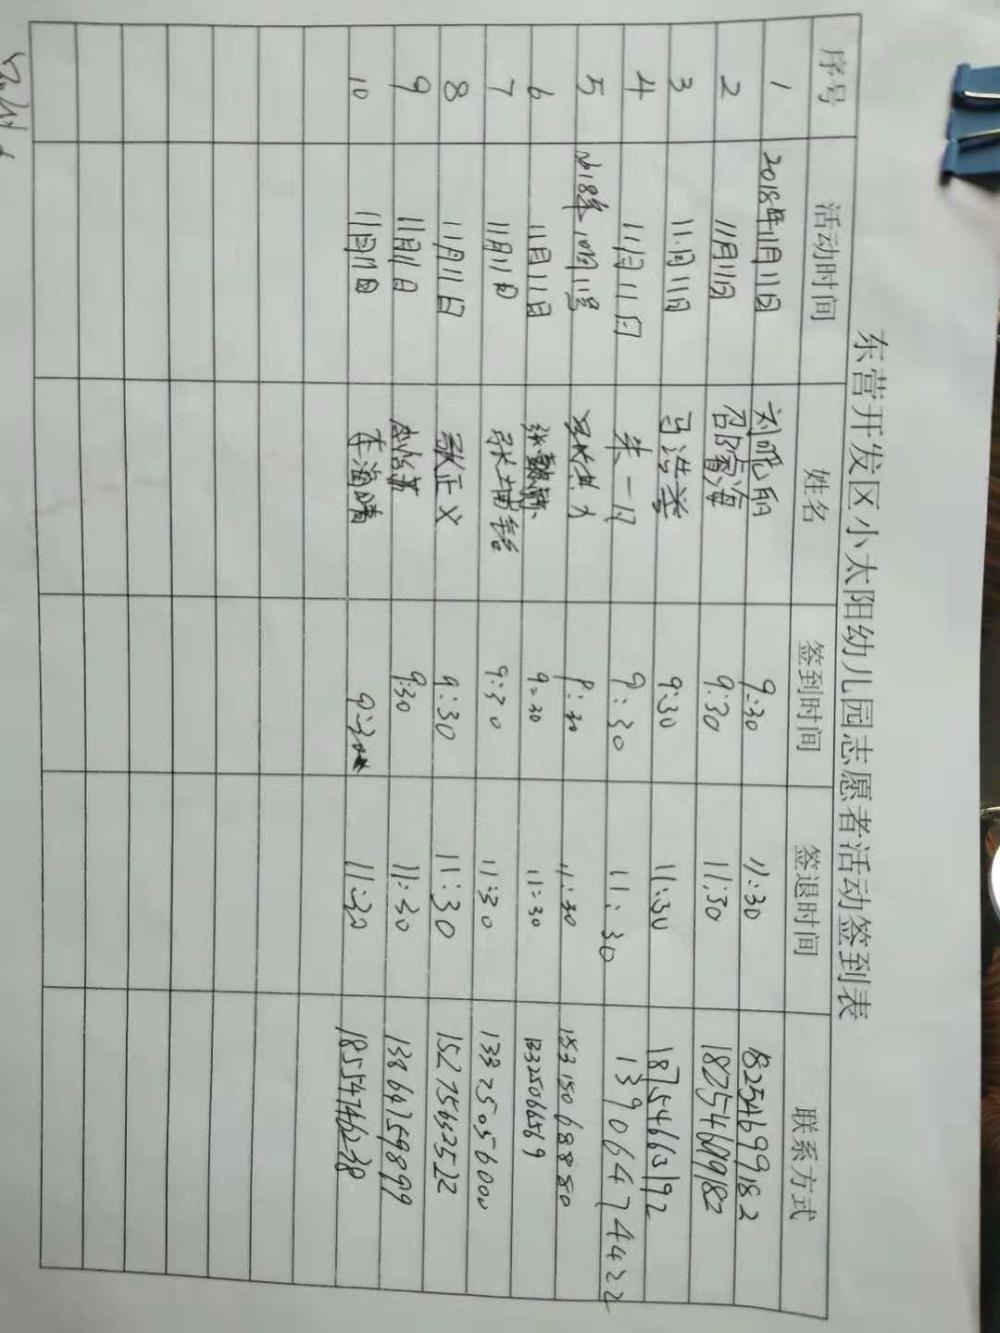 东营开发区小太阳幼儿园志愿者活动签到表
序号 活动时间 姓名 签到时间 签退时间 联系方式
1 2018年11月11日 刘晓丽 9:30 11:30 18254699182
2 11月11日 海 9:30 11:30 18254609182
3 11.月11日 马浩 9:30 11:30 18754663192
4 11月11日 朱一 9:30 11:30 13906474422
5 2018年10月11号 9:30 11:30 15315068880
6 11月11日 张 9:30 11:30 13325066569
7 11月11日 张 9:30 11:30 13325056000
8 11月11日 张正义 9:30 11:30 15275662522
9 11月11日 9:30 11:30 13864759899
10 11月11日 李海晴 9:30 11:30 18554746238